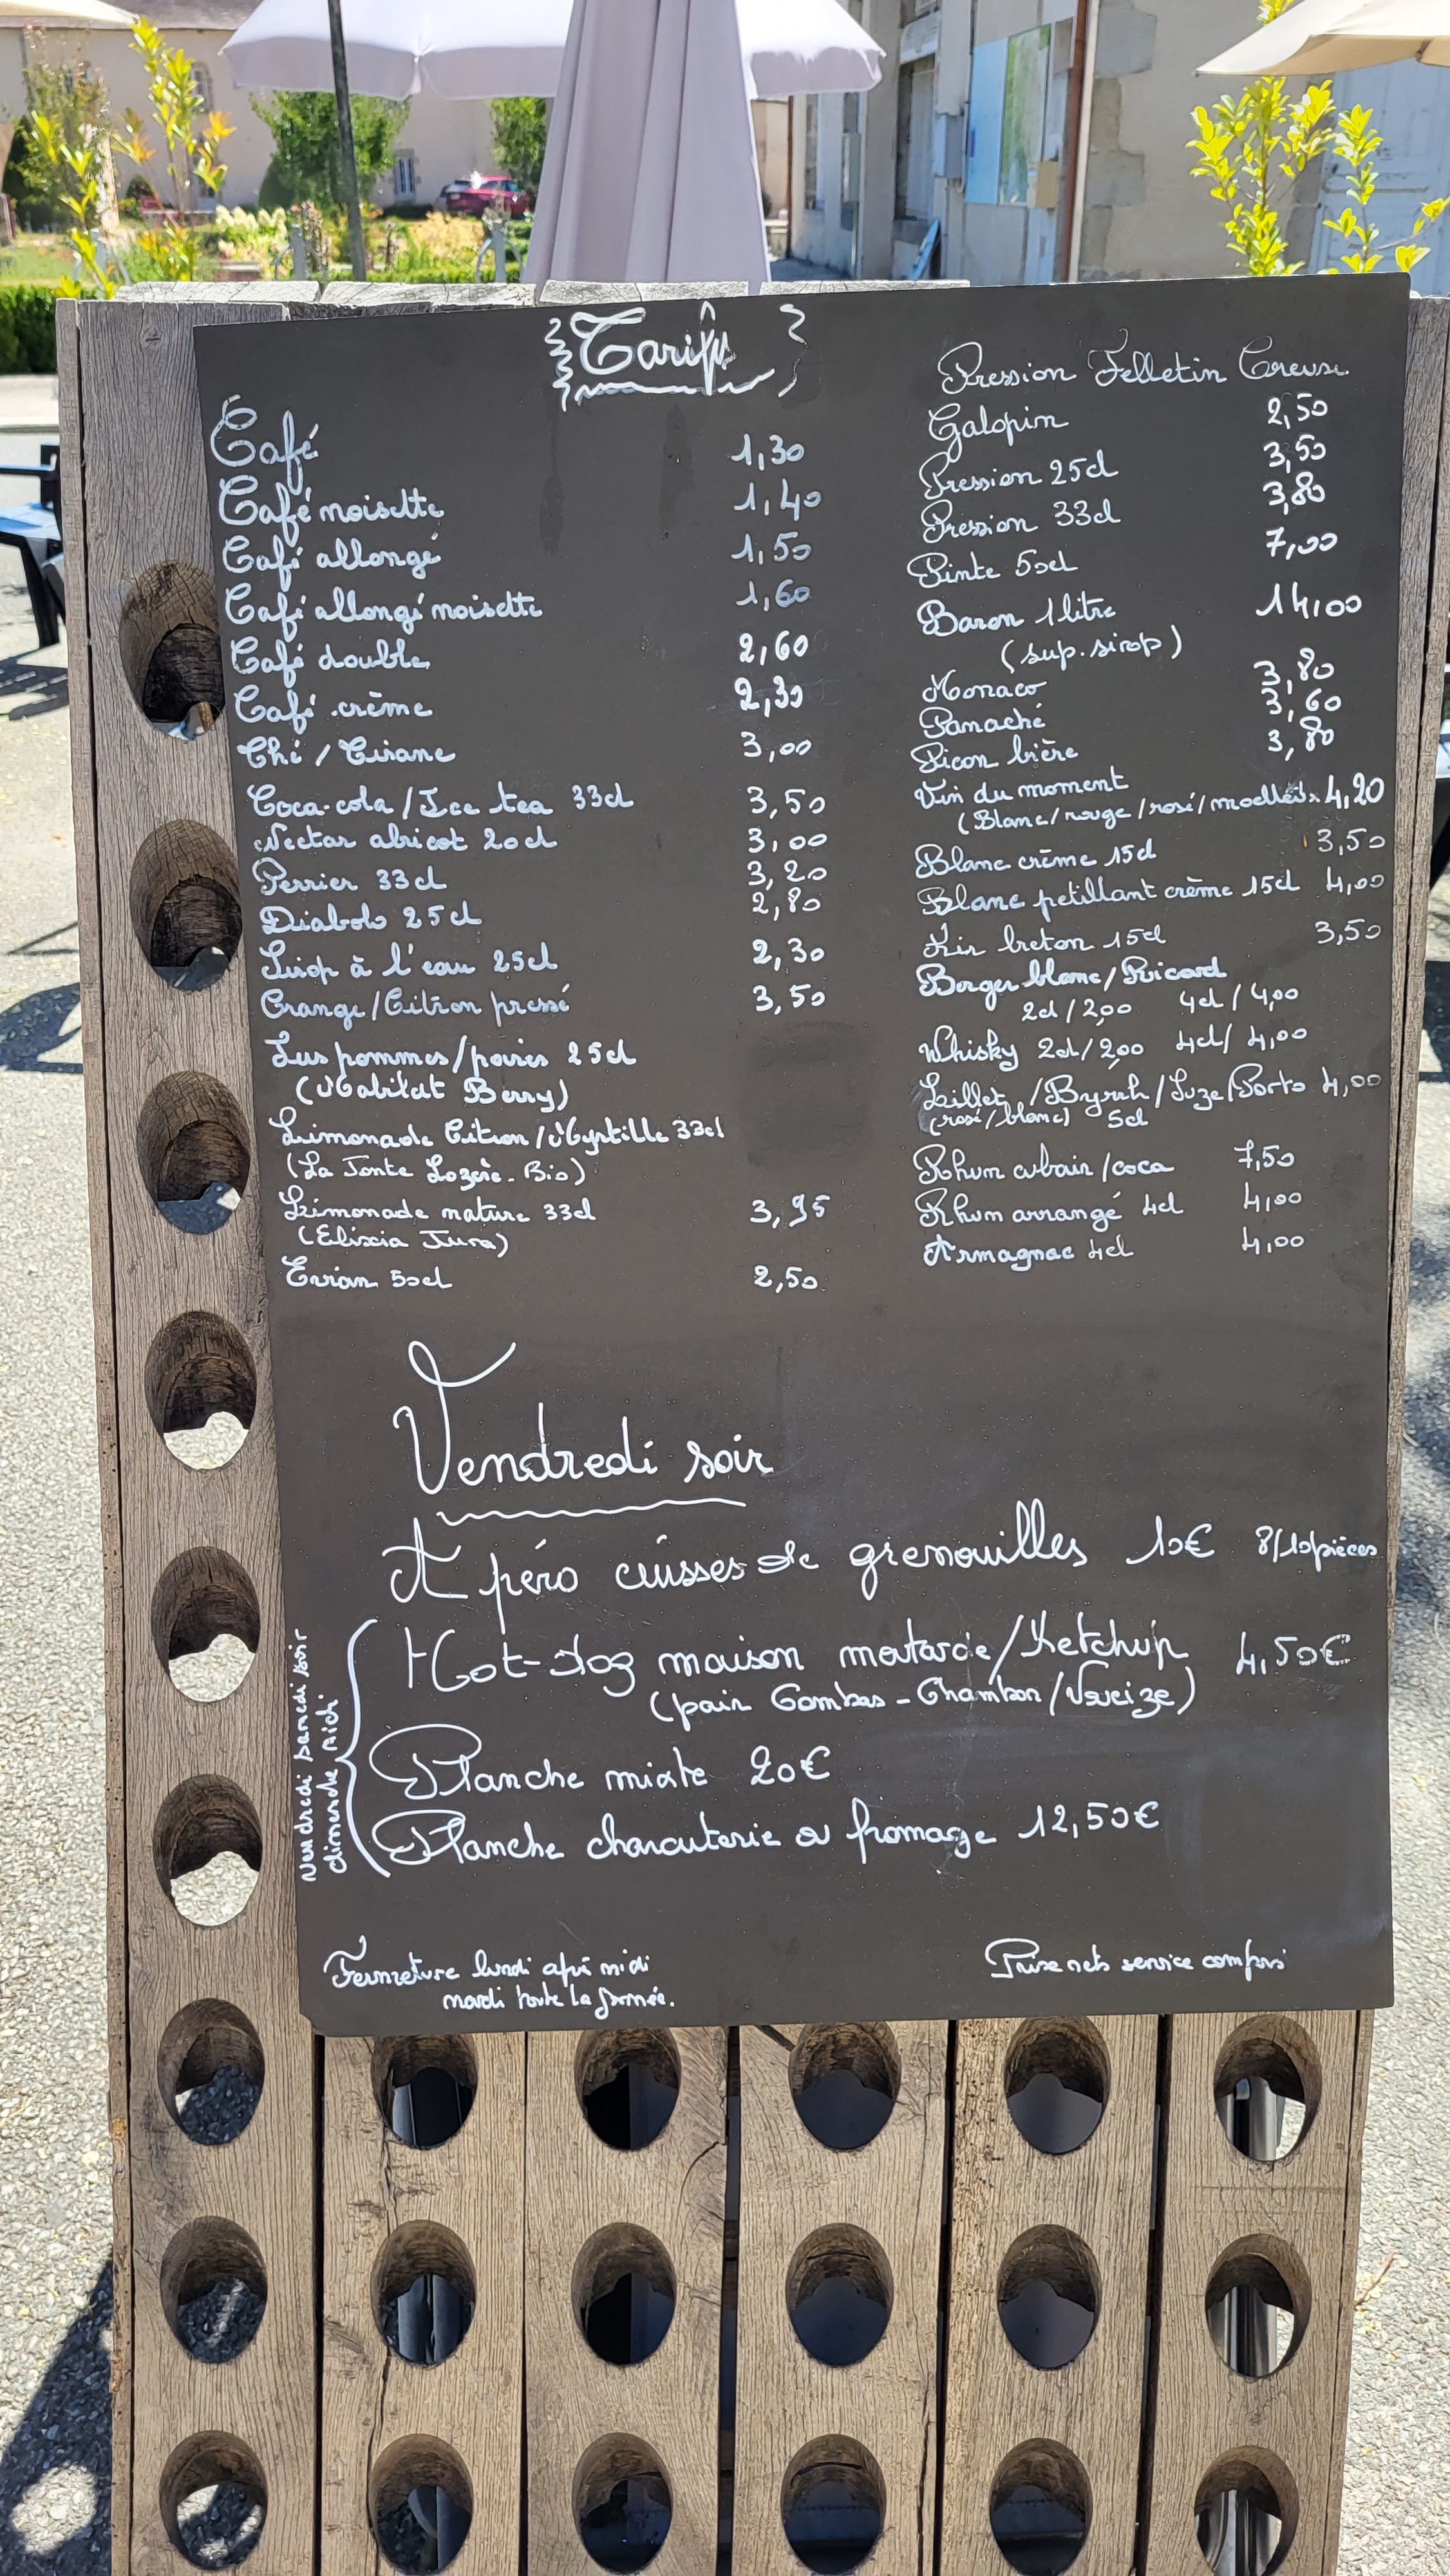 Tarifs
Café 1,30
Café noisette 1,40
Café allongé 1,50
Café allongé noisette 1,60
Café double 2,60
Café crème 2,30
Thé / Tisane 3,00
Coca-cola / Ice tea 33cl 3,50
Nectar abricot 20cl 3,00
Perrier 33cl 3,20
Diabolo 25cl 2,80
Sirop à l'eau 25cl 2,30
Orange/Citron pressé 3,50
Jus pommes/poires 25cl
(Habitat Berry)
Limonade Citron/Myrtille 33cl
(La Jonte Lozère-Bio)
Limonade nature 33cl 3,95
(Elixia Jura)
Evian 50cl 2,50
Pression Felletin Creuse
Galopin 2,50
Pression 25cl 3,50
Pression 33cl 3,80
Pinte 50cl 7,00
Baron 1 litre 14,00
(sup. sirop)
Monaco 3,80
Panaché 3,60
Picon bière 3,80
Vin du moment
(Blanc/rouge/rosé/moelleux 4,20
Blanc crème 15cl 3,50
Blanc petillant crème 15cl 4,00
Kir breton 15cl 3,50
Berger blanc/Ricard
2cl/2,00 4cl/4,00
Whisky 2cl/2,00 4cl/4,00
Lillet /Byrrh/Suze/Porto 4,00
(rosé/blanc) 5cl
Rhum cubain/coca 7,50
Rhum arrangé 4cl 4,00
Armagnac 4cl 4,00
Vendredi soir
Apéro cuisses de grenouilles 10€ 8/10pièces
Vendredi samedi soir
dimanche midi
Hot-dog maison moutarde/Ketchup 4,50€
(pain Gombas - Chambon/Voueize)
Planche mixte 20€
Planche charcuterie ou fromage 12,50€
Fermeture lundi aprè midi
mardi toute la journée.
Prix nets service compris